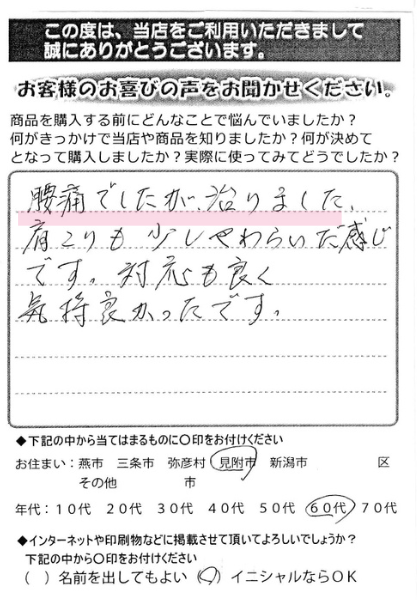 この度は、当店をご利用いただきまして
誠にありがとうございます。
お客様のお喜びの声をお聞かせください。
商品を購入する前にどんなことで悩んでいましたか？
何がきっかけで当店や商品を知りましたか？何が決めて
となって購入しましたか？実際に使ってみてどうでしたか？
腰痛でしたが、治りました、
肩こりも少しやわらいだ感じ
です。対応も良く
気持良かったです。
◆下記の中から当てはまるものに〇印をお付けください
お住まい：燕市 三条市 弥彦村 見附市 新潟市 区
その他 市
年代：10代 20代 30代 40代 50代 60代 70代
◆インターネットや印刷物などに掲載させて頂いてよろしいでしょうか？
下記の中から〇印をお付けください
（ ）名前を出してもよい（〇）イニシャルならOK